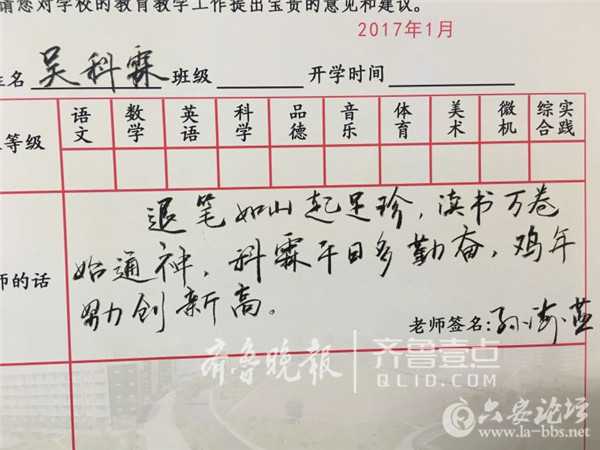 请您对学校的教育教学工作提出宝贵的意见和建议。
2017年1月
姓名 吴科霖 班级 开学时间
等级 语文 数学 英语 科学 品德 音乐 体育 美术 微机 综合实践
师的话
退笔如山起足珍,读书万卷
始通神,科霖平日多勤奋,鸡年
努力创新高。
老师签名:孙海燕
齐鲁晚报 齐鲁壹点
QLID.COM
六安论坛
www.la-bbs.net